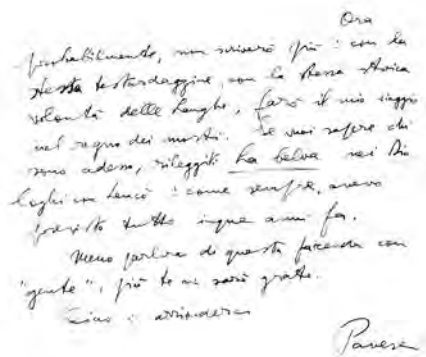 Ora
probabilmente, non scriverò più : con la
stessa testardaggine, con la stessa stoica
volontà delle Langhe, farò il mio viaggio
nel regno dei morti. Se vuoi sapere chi
sono adesso, rileggiti La belva nei Dia
loghi con Leucò : come sempre, avevo
previsto tutto cinque anni fa.
Meno parlerai di questa faccenda con
"gente", più te ne sarò grato.
Ciao e arrivederci
Pavese